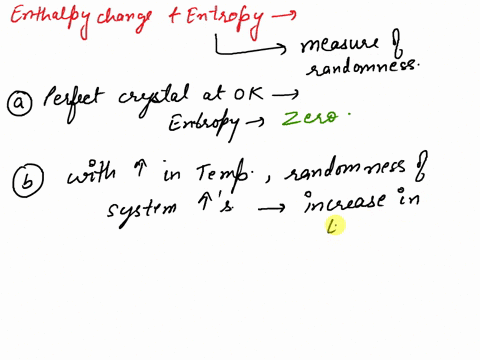 Enthalpy change + Entropy →
→ measure of
randomness.
(a) Perfect crystal at 0K →
Entropy → Zero.
(b) with ↑ in Temp., randomness of
system ↑'s → increase in